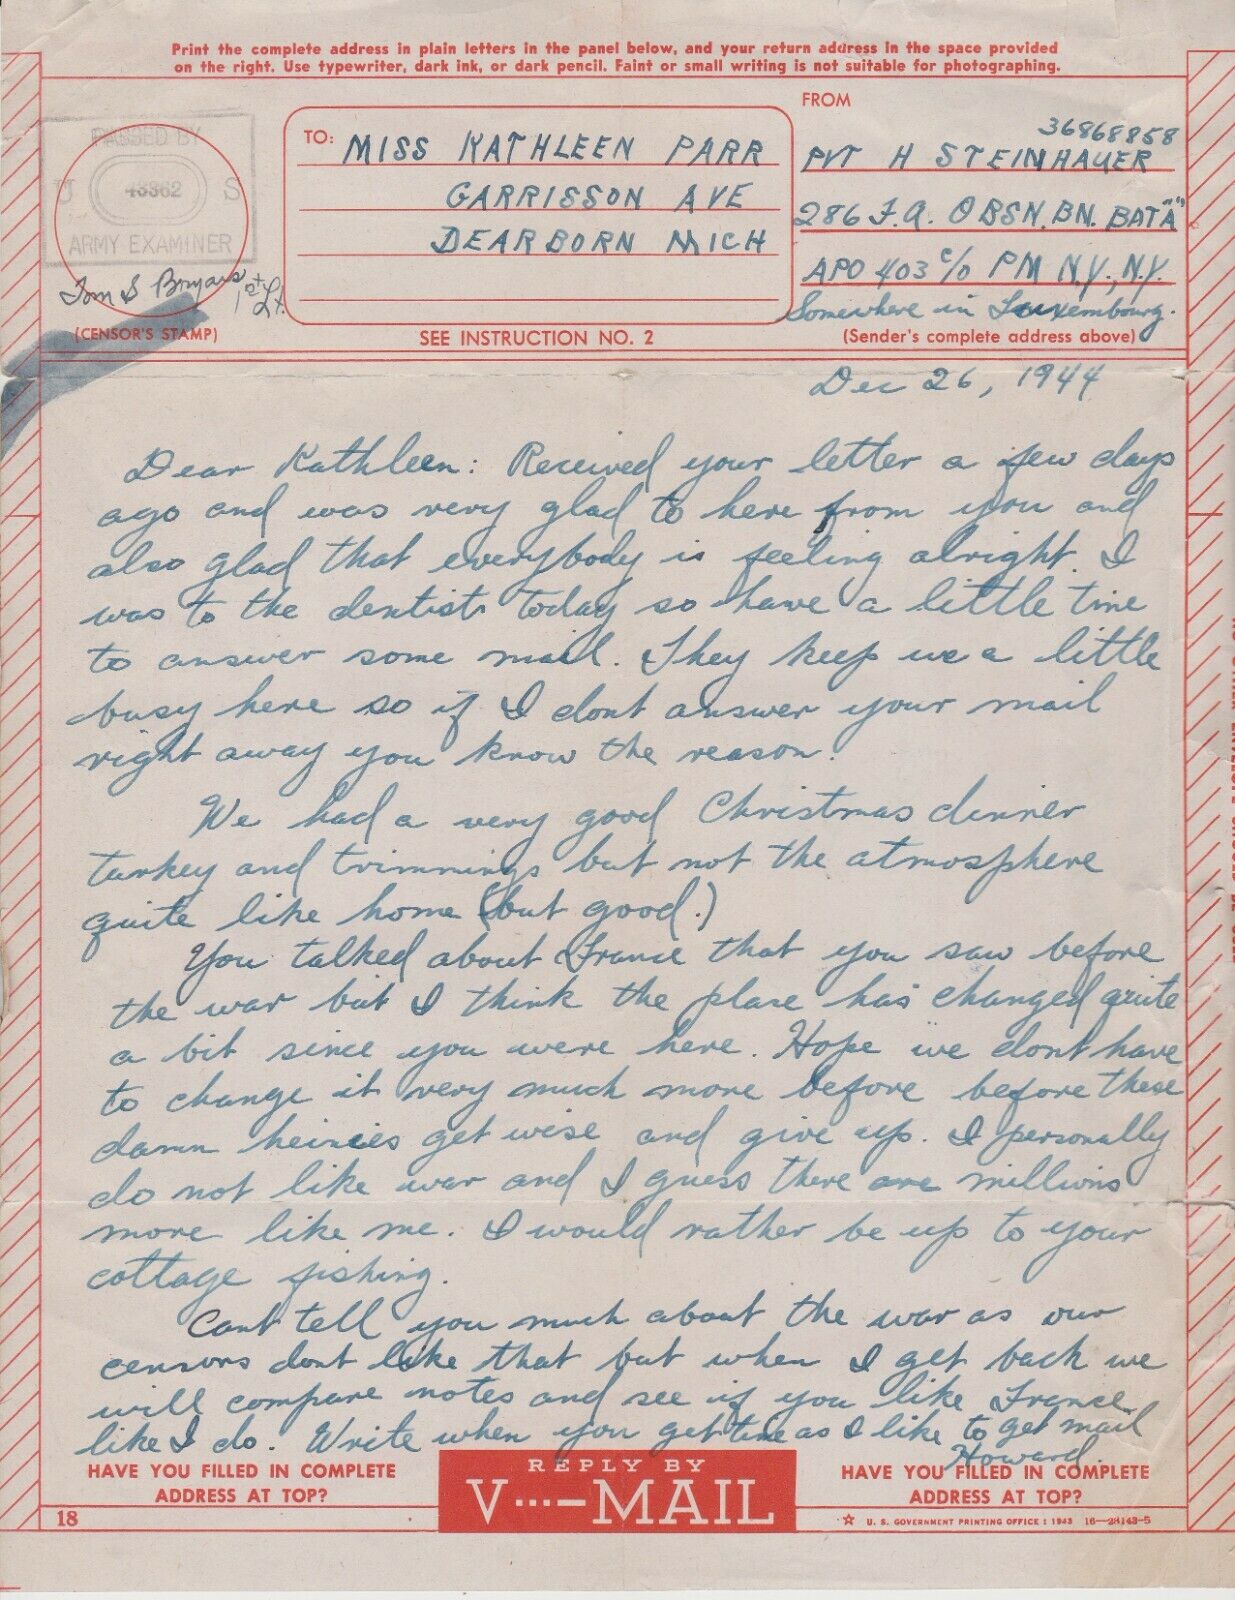 Print the complete address in plain letters in the panel below, and your return address in the space provided
on the right. Use typewriter, dark ink, or dark pencil. Faint or small writing is not suitable for photographing.
PASSED BY
U 43362 S
ARMY EXAMINER
Tom S Bryars
1st Lt.
(CENSOR'S STAMP)
TO: MISS KATHLEEN PARR
GARRISSON AVE
DEARBORN MICH
SEE INSTRUCTION NO. 2
FROM
36868858
PVT H STEINHAUER
286 F.A. OBSN. BN. BAT "A"
APO 403 c/o PM N.Y., N.Y.
Somewhere in Luxembourg.
(Sender's complete address above)
Dec 26, 1944
Dear Kathleen: Received your letter a few days
ago and was very glad to here from you and
also glad that everybody is feeling alright. I
was to the dentists today so have a little time
to answer some mail. They keep us a little
busy here so if I dont answer your mail
right away you know the reason.
We had a very good Christmas dinner
turkey and trimmings but not the atmosphere
quite like home (but good.)
You talked about France that you saw before
the war but I think the place has changed quite
a bit since you were here. Hope we dont have
to change it very much more before before these
damn heinies get wise and give up. I personally
do not like war and I guess there are millions
more like me. I would rather be up to your
cottage fishing.
Cant tell you much about the war as our
censors dont like that but when I get back we
will compare notes and see if you like France
like I do. Write when you get time as I like to get mail
Howard.
HAVE YOU FILLED IN COMPLETE
ADDRESS AT TOP?
REPLY BY
V···—MAIL
HAVE YOU FILLED IN COMPLETE
ADDRESS AT TOP?
18
☆ U. S. GOVERNMENT PRINTING OFFICE : 1943 16—28143-5